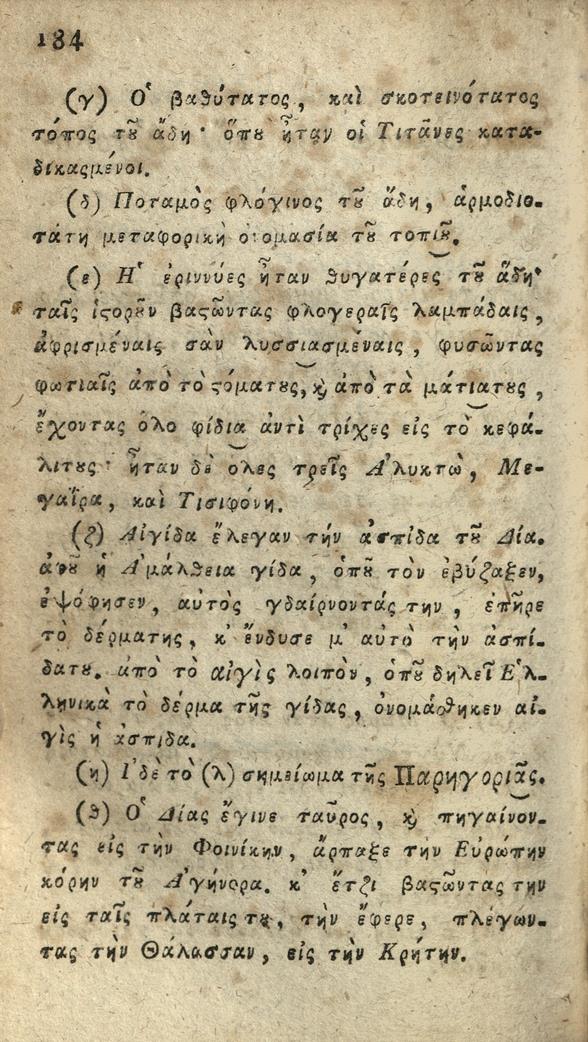 184
(γ) Ὁ βαθύτατος, καὶ σκοτεινότατος
τόπος τȣ͂ ἅδη· ὅπȣ ἦταν οἱ Τιτᾶνες κατα-
δικασμένοι.
(δ) Ποταμὸς φλόγινος τȣ͂ ἅδη, ἁρμοδιο-
τάτη μεταφορικὴ ὀνομασία τȣ͂ τοπιȣ͂.
(ε) Ἡ ἐριννύες ἦταν θυγατέρες τȣ͂ ἅδη·
ταῖς ἱϛορȣ͂ν βαϛῶντας φλογεραῖς λαμπάδαις,
ἀφρισμέναις σὰν λυσσιασμέναις, φυσῶντας
φωτιαῖς ἀπὸ τὸ ϛόματȣς, ϗ̀ ἀπὸ τὰ μάτιατȣς,
ἔχοντας ὅλο φίδια ἀντὶ τρίχες εἰς τὸ κεφά-
λιτȣς· ἦταν δὲ ὅλες τρεῖς Ἀλυκτὼ, Με-
γαῖρα, καὶ Τισιφόνη.
(ζ) Αἰγίδα ἔλεγαν τὴν ἀσπίδα τȣ͂ Δία.
ἀφȣ͂ ἡ Ἀμάλθεια γίδα, ὁπȣ͂ τὸν ἐβύζαξεν,
ἐψόφησεν, αὐτὸς γδαίρνοντάς την, ἐπῆρε
τὸ δέρματης, κ᾽ ἔνδυσε μ᾽ αὐτὸ τὴν ἀσπί-
δατȣ. ἀπὸ τὸ αἰγὶς λοιπὸν, ὁπȣ͂ δηλεῖ Ἑλ-
ληνικὰ τὸ δέρμα τῆς γίδας, ὀνομάσθηκεν αἰ-
γὶς ἡ ἀσπίδα.
(η) Ἰδὲ τὸ (λ) σημείωμα τῆς Παρηγοριᾶς.
(θ) Ὁ Δίας ἔγινε ταῦρος, ϗ̀ πηγαίνον-
τας εἰς τὴν Φοινίκην, ἅρπαξε τὴν Εὐρώπην
κόρην τȣ͂ Ἀγήνορα. κ᾽ ἔτζι βαϛῶντας την
εἰς ταῖς πλάταις τȣ, τὴν ἔφερε, πλέγων-
τας τὴν Θάλασσαν, εἰς τὴν Κρήτην.